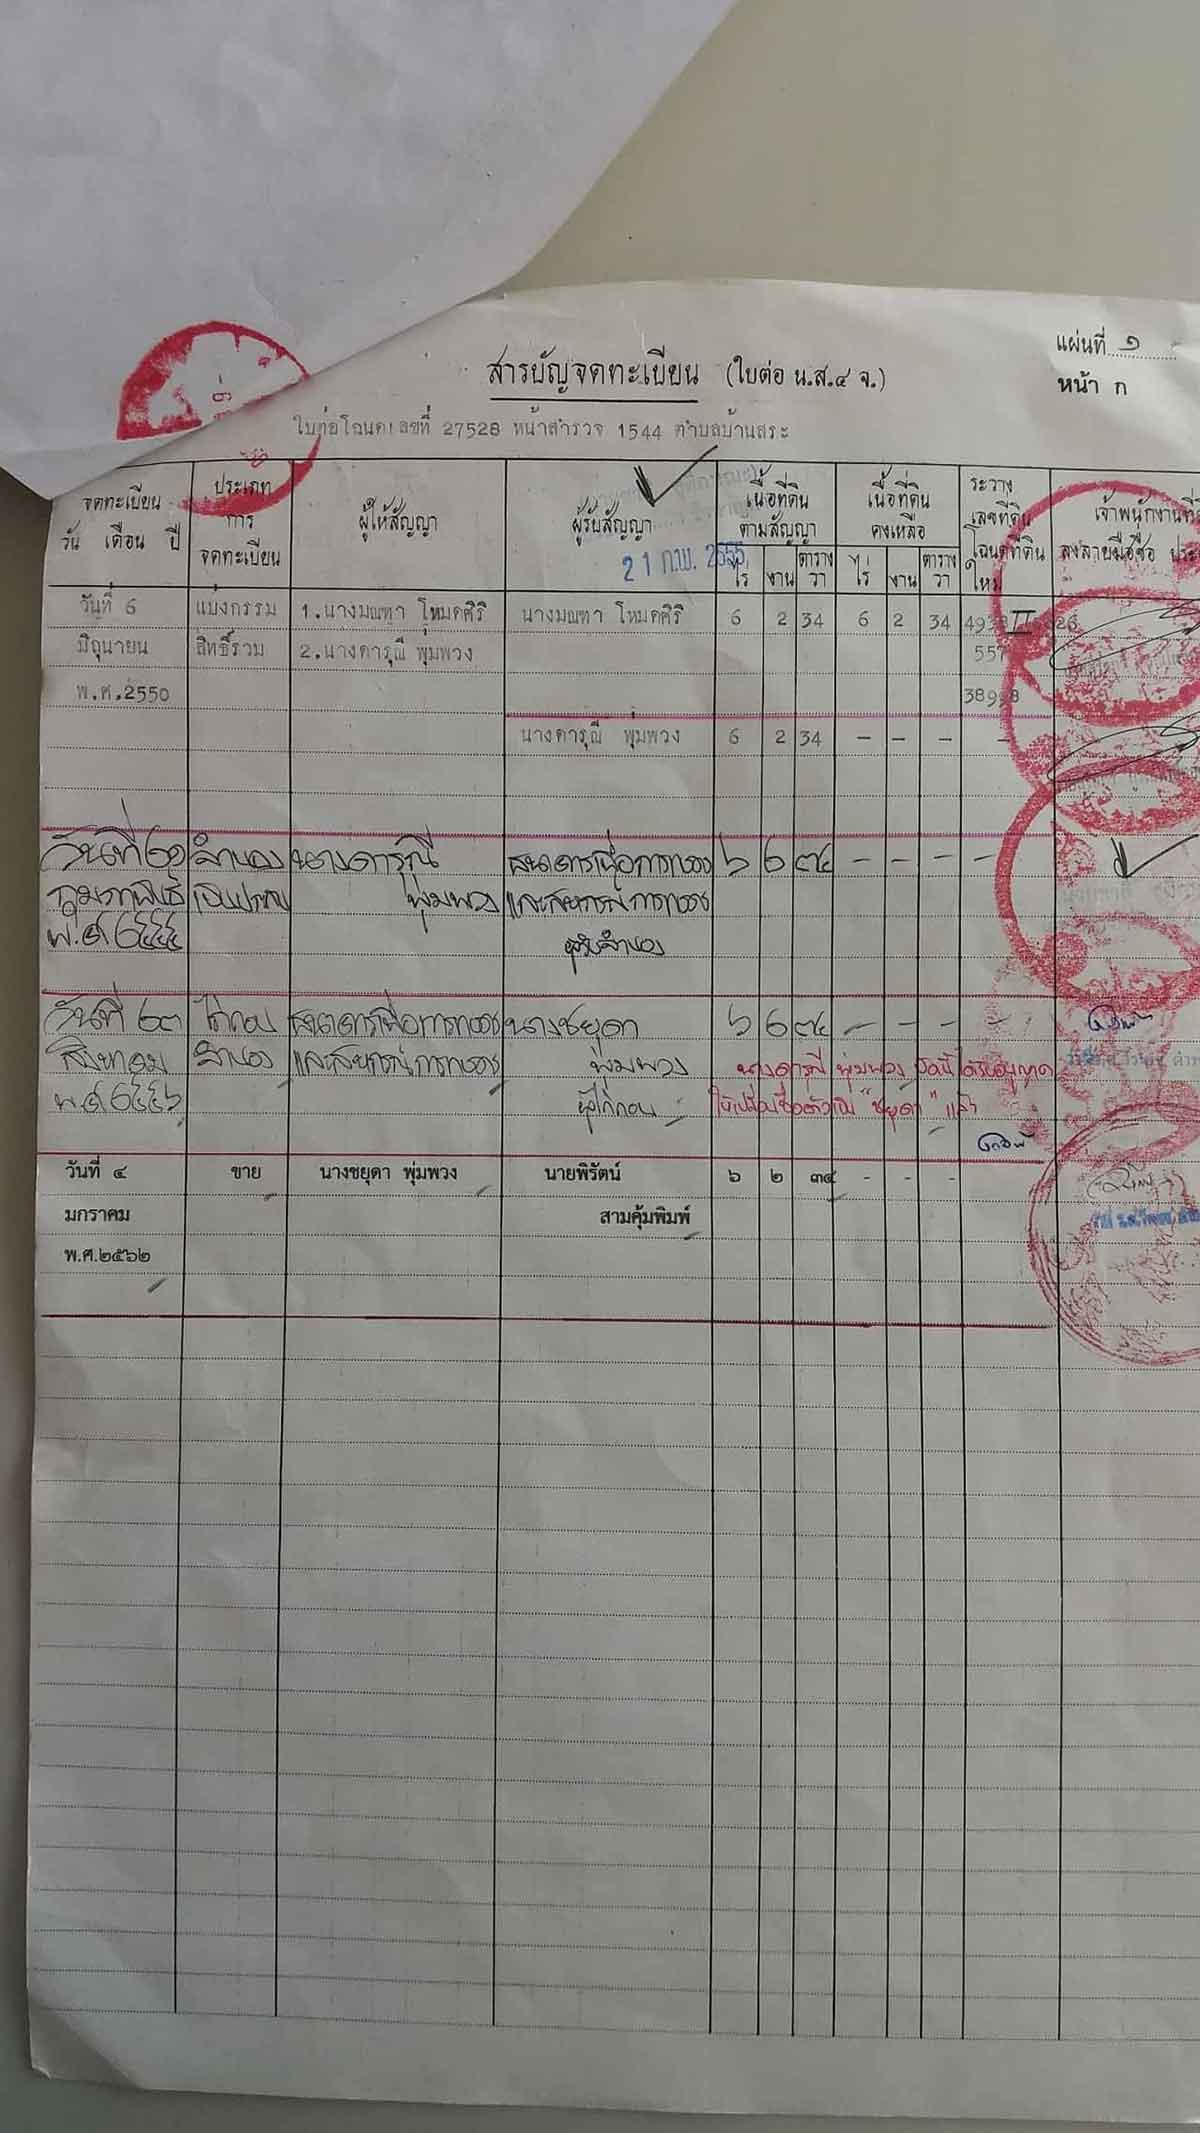 แผ่นที่ ๑
สารบัญจดทะเบียน (ใบต่อ น.ส.๔ จ.)
หน้า ก
ใบต่อโฉนดเลขที่ 27528 หน้าสำรวจ 1544 ตำบลบ้านสระ
จดทะเบียน วัน เดือน ปี
ประเภทการจดทะเบียน
ผู้ให้สัญญา
ผู้รับสัญญา
เนื้อที่ดินตามสัญญา
เนื้อที่ดินคงเหลือ
ระวาง เลขที่ดิน โฉนดที่ดินใหม่
เจ้าพนักงานที่ดิน ลงลายมือชื่อ
21 ก.พ. 2555
ไร่ งาน ตารางวา ไร่ งาน ตารางวา
วันที่ 6 แบ่งกรรม 1.นางมณฑา โหมดศิริ นางมณฑา โหมดศิริ 6 2 34 6 2 34
มิถุนายน สิทธิ์รวม 2.นางดารุณี พุ่มพวง 557
พ.ศ.2550
นางดารุณี พุ่มพวง 6 2 34 - - - -
วันที่ ๒๑ จำนอง นางดารุณี ธนาคารเพื่อการเกษตร ๖ ๒ ๓๔ - - - -
กุมภาพันธ์ เป็นประกัน พุ่มพวง และสหกรณ์การเกษตร
พ.ศ. ๒๕๕๕ ผู้รับจำนอง
วันที่ ๒๓ ไถ่ถอน ธนาคารเพื่อการเกษตร นางชยุดา ๖ ๒ ๓๔ - - - -
สิงหาคม จำนอง และสหกรณ์การเกษตร พุ่มพวง นางดารุณี พุ่มพวง บัดนี้ได้รับอนุญาต
พ.ศ. ๒๕๕๖ ผู้ไถ่ถอน ให้เปลี่ยนชื่อตัวเป็น "ชยุดา" แล้ว
วันที่ ๔ ขาย นางชยุดา พุ่มพวง นายพิรัตน์ ๖ ๒ ๓๔ - - -
มกราคม สามคุ้มพิมพ์
พ.ศ.๒๕๖๒